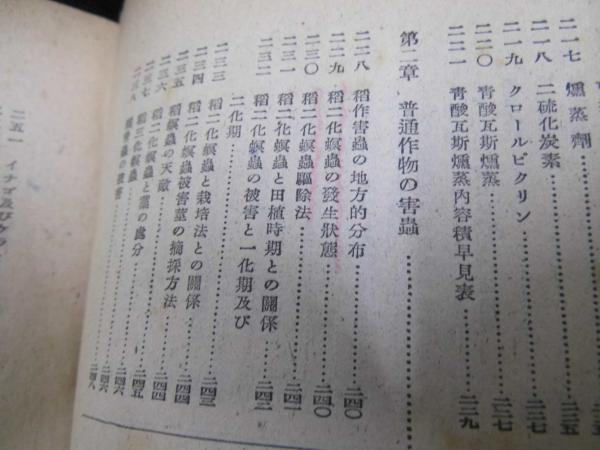 二一七 燻蒸劑……二三五
二一八 二硫化炭素……二三七
二一九 クロールピクリン……二三七
二二〇 青酸瓦斯燻蒸
二二一 青酸瓦斯燻蒸內容積早見表……二三九
第二章 普通作物の害蟲……
二二八 稻作害蟲の地方的分布……二四〇
二二九 稻二化螟蟲の發生狀態……二四〇
二三〇 稻二化螟蟲驅除法……二四一
二三一 稻二化螟蟲と田植時期との關係……二四二
二三二 稻二化螟蟲の被害と一化期及び
二化期……二四三
二三三 稻二化螟蟲と栽培法との關係……二四四
二三四 稻二化螟蟲被害莖の摘採方法……二四四
二三五 稻螟蟲の天敵……二四五
二三六 稻二化螟蟲と藁の處分……二四六
二三七 稻三化螟蟲……二四六
二三八 の被害……二四八
二五一 イナゴ及び